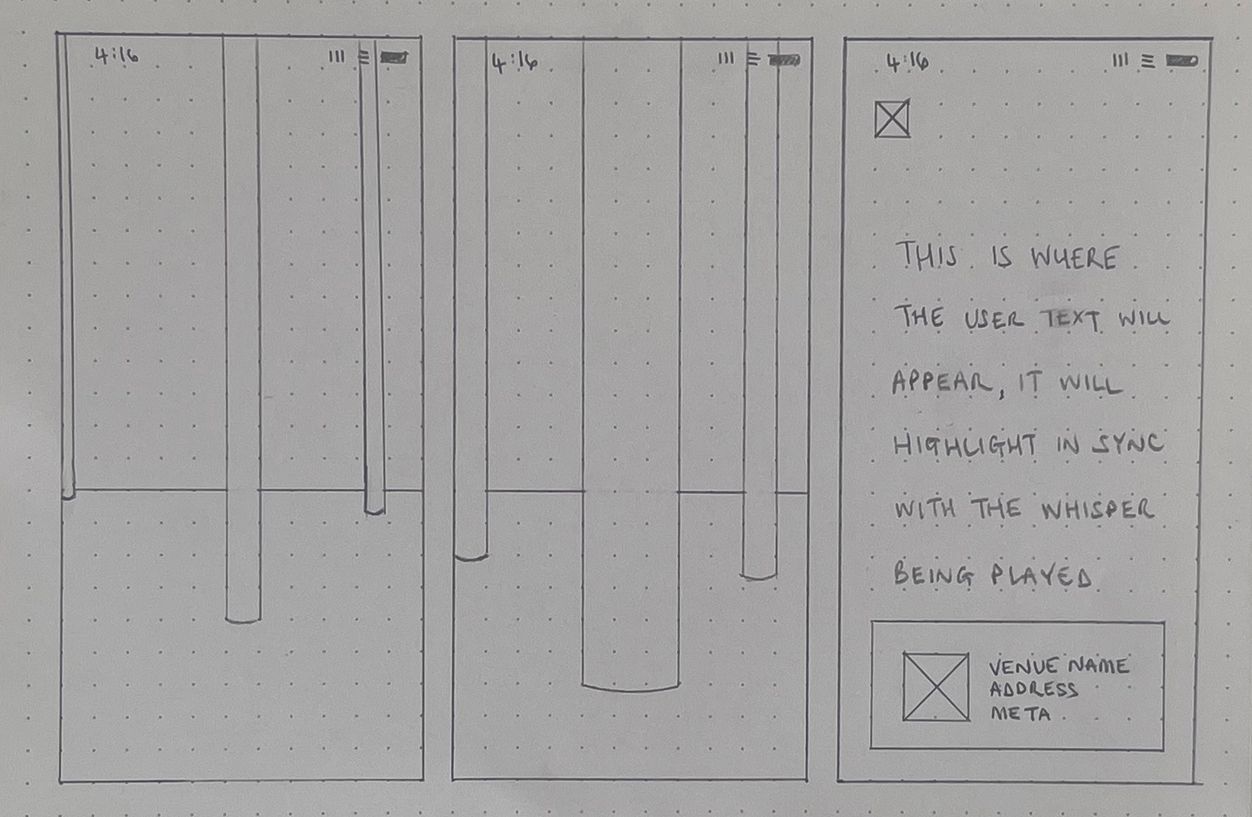 4:16
4:16
4:16
THIS IS WHERE
THE USER TEXT WILL
APPEAR, IT WILL
HIGHLIGHT IN SYNC
WITH THE WHISPER
BEING PLAYED
VENUE NAME
ADDRESS
META